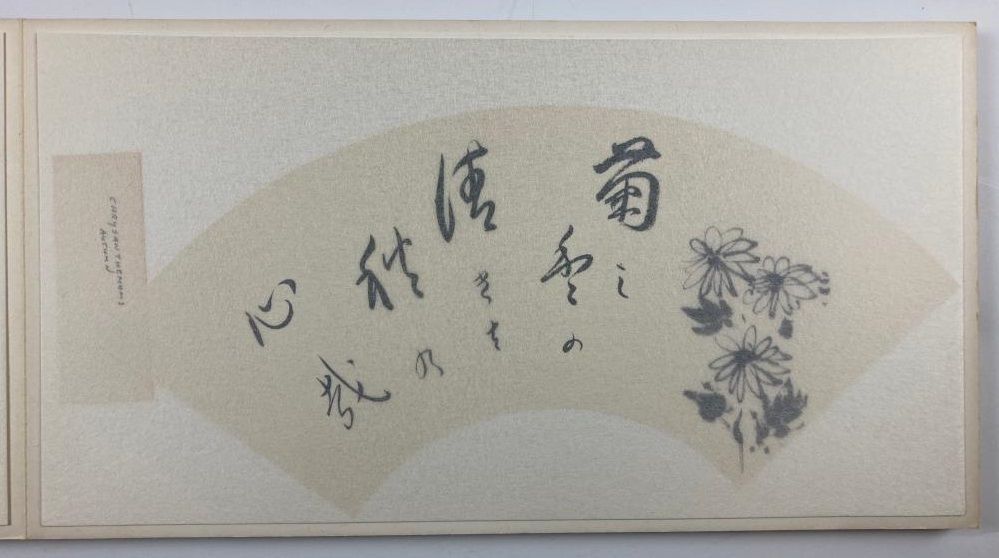 菊之
香の
清きを
秋乃
心哉
CHRYSANTHEMUMS
AUTUMN